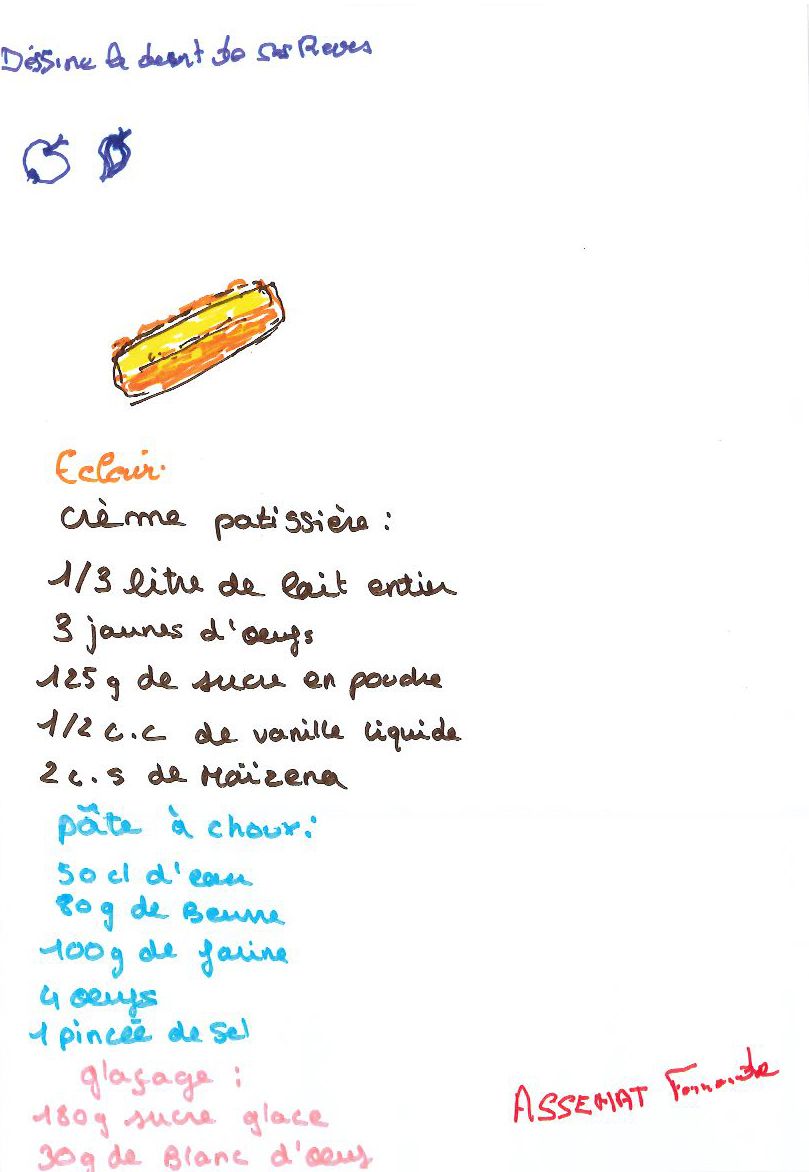 Déssine le
Eclair.
crème patissière :
1/3 litre de lait entier
3 jaunes d'oeufs
125 g de sucre en poudre
1/2 c.c de vanille liquide
2 c.s de Maïzena
pâte à choux :
50 cl d'eau
80 g de Beurre
100 g de farine
4 oeufs
1 pincée de sel
glaçage :
180g sucre glace
30g de Blanc d'oeuf
ASSEMAT